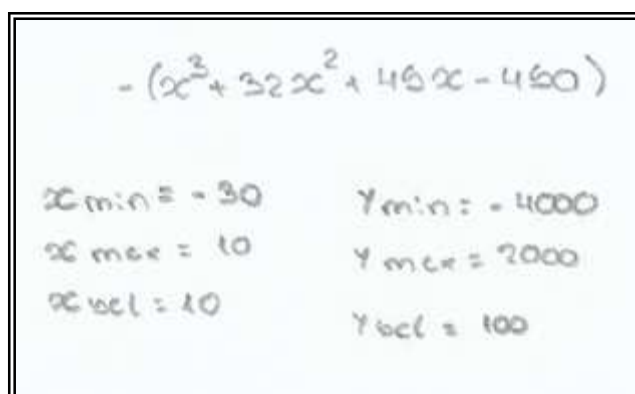 - (x³ + 32x² + 45x - 450)
x min = - 30
x max = 10
x scl = 10
Y min = - 4000
Y max = 2000
Y scl = 100